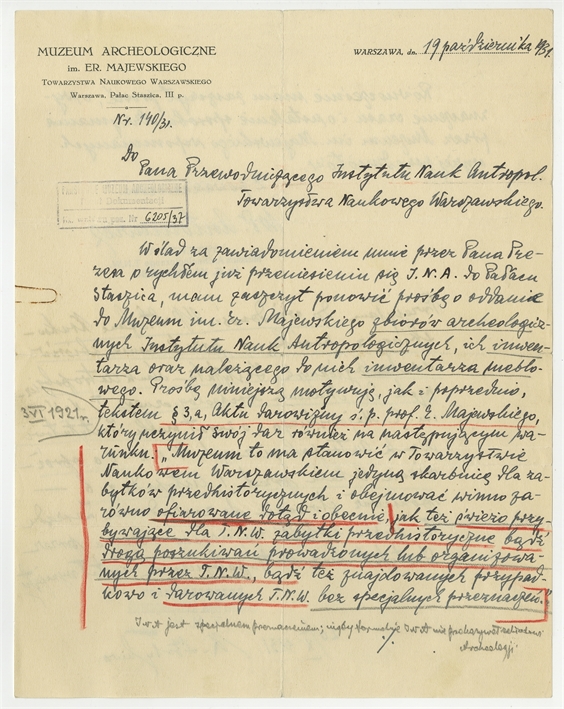 MUZEUM ARCHEOLOGICZNE
im. ER. MAJEWSKIEGO
TOWARZYSTWA NAUKOWEGO WARSZAWSKIEGO
Warszawa, Pałac Staszica, III p.
WARSZAWA, dn. 19 października 1931.
Nr. 140/31.
Do
Pana Przewodniczącego Instytutu Nauk Antropol.
Towarzystwa Naukowego Warszawskiego.
MUZEUM ARCHEOLOGICZNE
i Dokumentacji
Nr 6205/37
W ślad za zawiadomieniem mnie przez Pana Pre-
zesa o rychłem już przeniesieniu się I.N.A. do Pałacu
Staszica, mam zaszczyt ponowić prośbę o oddanie
do Muzeum im. Er. Majewskiego zbiorów archeologicz-
nych Instytutu Nauk Antropologicznych, ich inwen-
tarza oraz należącego do nich inwentarza meblo-
wego. Prośbę niniejszą motywują, jak i poprzednio,
tekstem § 3,a, Aktu darowizny ś.p. prof. E. Majewskiego,
3 VI 1921 r.
który uczynił swój dar również na następującym wa-
runku. „Muzeum to ma stanowić w Towarzystwie
Naukowem Warszawskiem jedyną skarbnicę dla za-
bytków przedhistorycznych i obejmować winno za-
równo ofiarowane dotąd i obecnie, jak też świeżo przy-
bywające dla T.N.W. zabytki przedhistoryczne bądź
drogą poszukiwań prowadzonych lub organizowa-
nych przez T.N.W., bądź też znajdowanych przypad-
kowo i darowanych T.N.W. bez specjalnych przeznaczeń."
I.N.A. jest specjalnem przeznaczeniem; nigdy formalnie I.N.A. nie
Archeologji